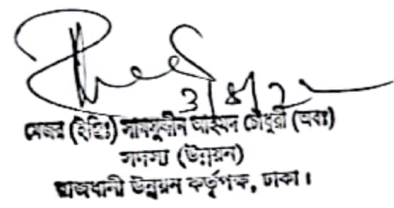 ৩/৪/২
মেজর (ইঞ্জিঃ) সামসুদ্দীন আহমদ চৌধুরী (অবঃ)
সদস্য (উন্নয়ন)
রাজধানী উন্নয়ন কর্তৃপক্ষ, ঢাকা।